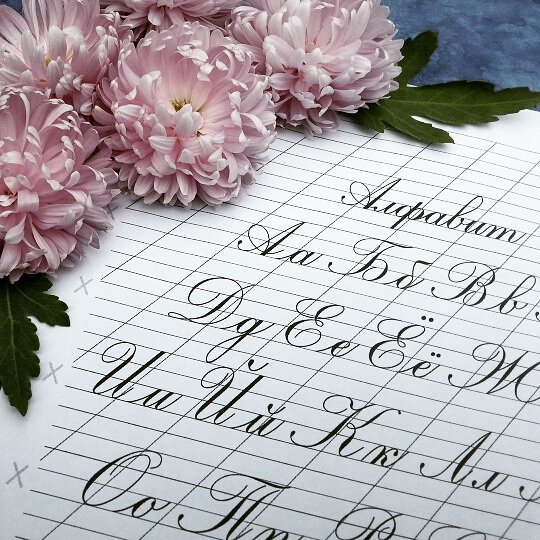 Алфавит
Аа Бб Вв
Дд Ее Ёё Ж
Ии Йй Кк Лл
Оо Пп Р